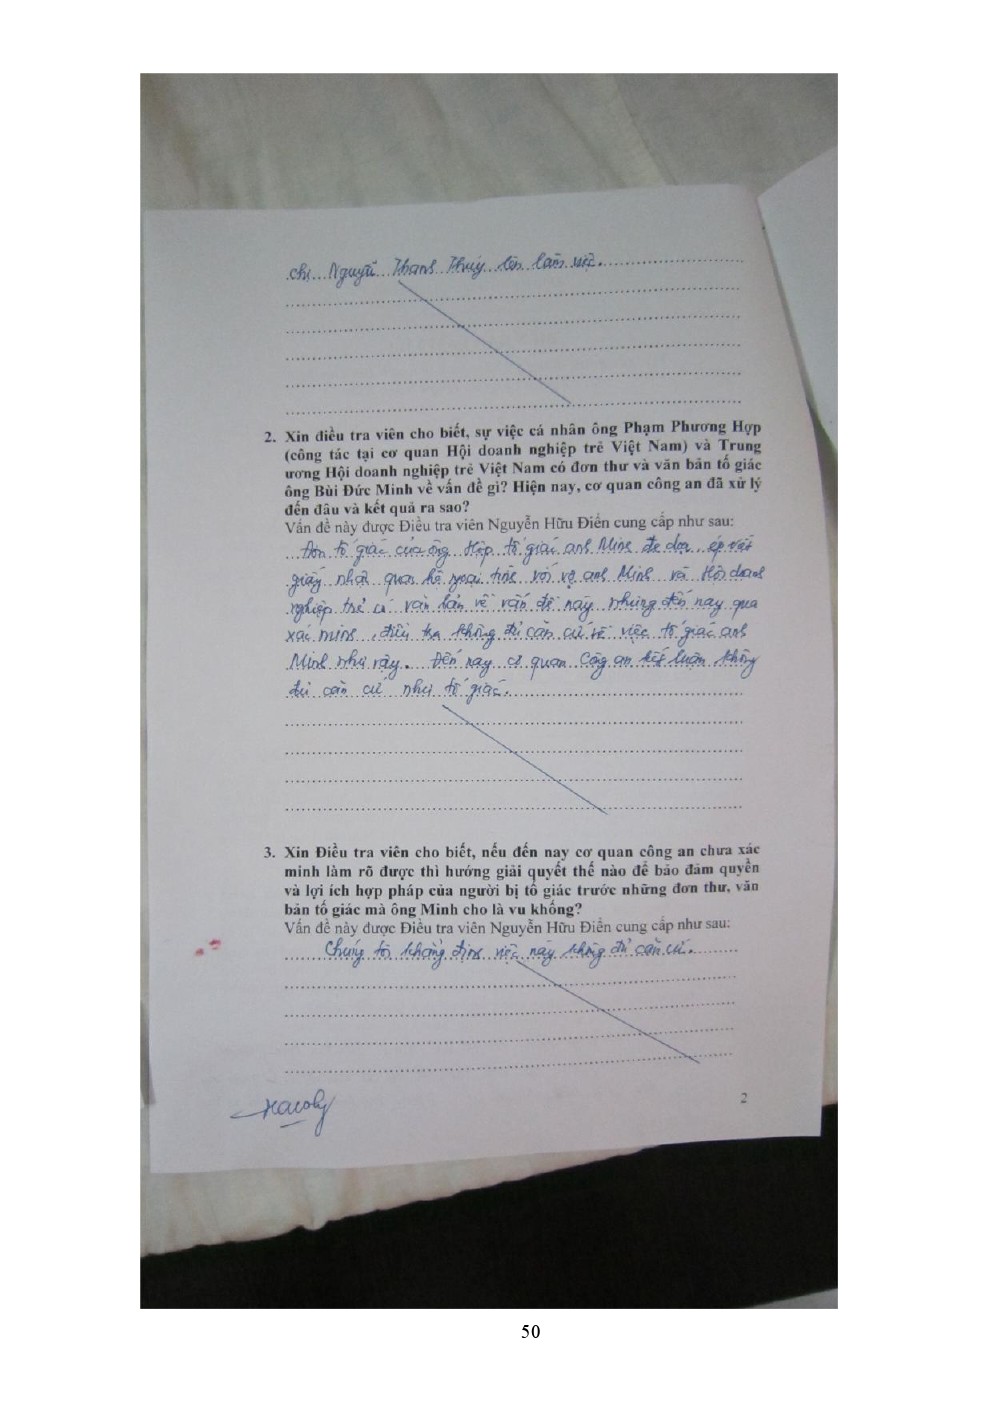 chị Nguyễn Thanh Thúy lên làm việc.
2. Xin điều tra viên cho biết, sự việc cá nhân ông Phạm Phương Hợp
(công tác tại cơ quan Hội doanh nghiệp trẻ Việt Nam) và Trung
ương Hội doanh nghiệp trẻ Việt Nam có đơn thư và văn bản tố giác
ông Bùi Đức Minh về vấn đề gì? Hiện nay, cơ quan công an đã xử lý
đến đâu và kết quả ra sao?
Vấn đề này được Điều tra viên Nguyễn Hữu Điển cung cấp như sau:
Đơn tố giác của ông Hợp tố giác anh Minh đe dọa, ép viết
giấy nhận quan hệ ngoại tình với vợ anh Minh và Hội doanh
nghiệp trẻ có văn bản về vấn đề này nhưng đến nay qua
xác minh, điều tra không đủ căn cứ về việc tố giác anh
Minh như vậy. Đến nay cơ quan Công an kết luận không
đủ căn cứ như tố giác.
3. Xin Điều tra viên cho biết, nếu đến nay cơ quan công an chưa xác
minh làm rõ được thì hướng giải quyết thế nào để bảo đảm quyền
và lợi ích hợp pháp của người bị tố giác trước những đơn thư, văn
bản tố giác mà ông Minh cho là vu khống?
Vấn đề này được Điều tra viên Nguyễn Hữu Điển cung cấp như sau:
Chúng tôi khẳng định việc này không đủ căn cứ.
2
50